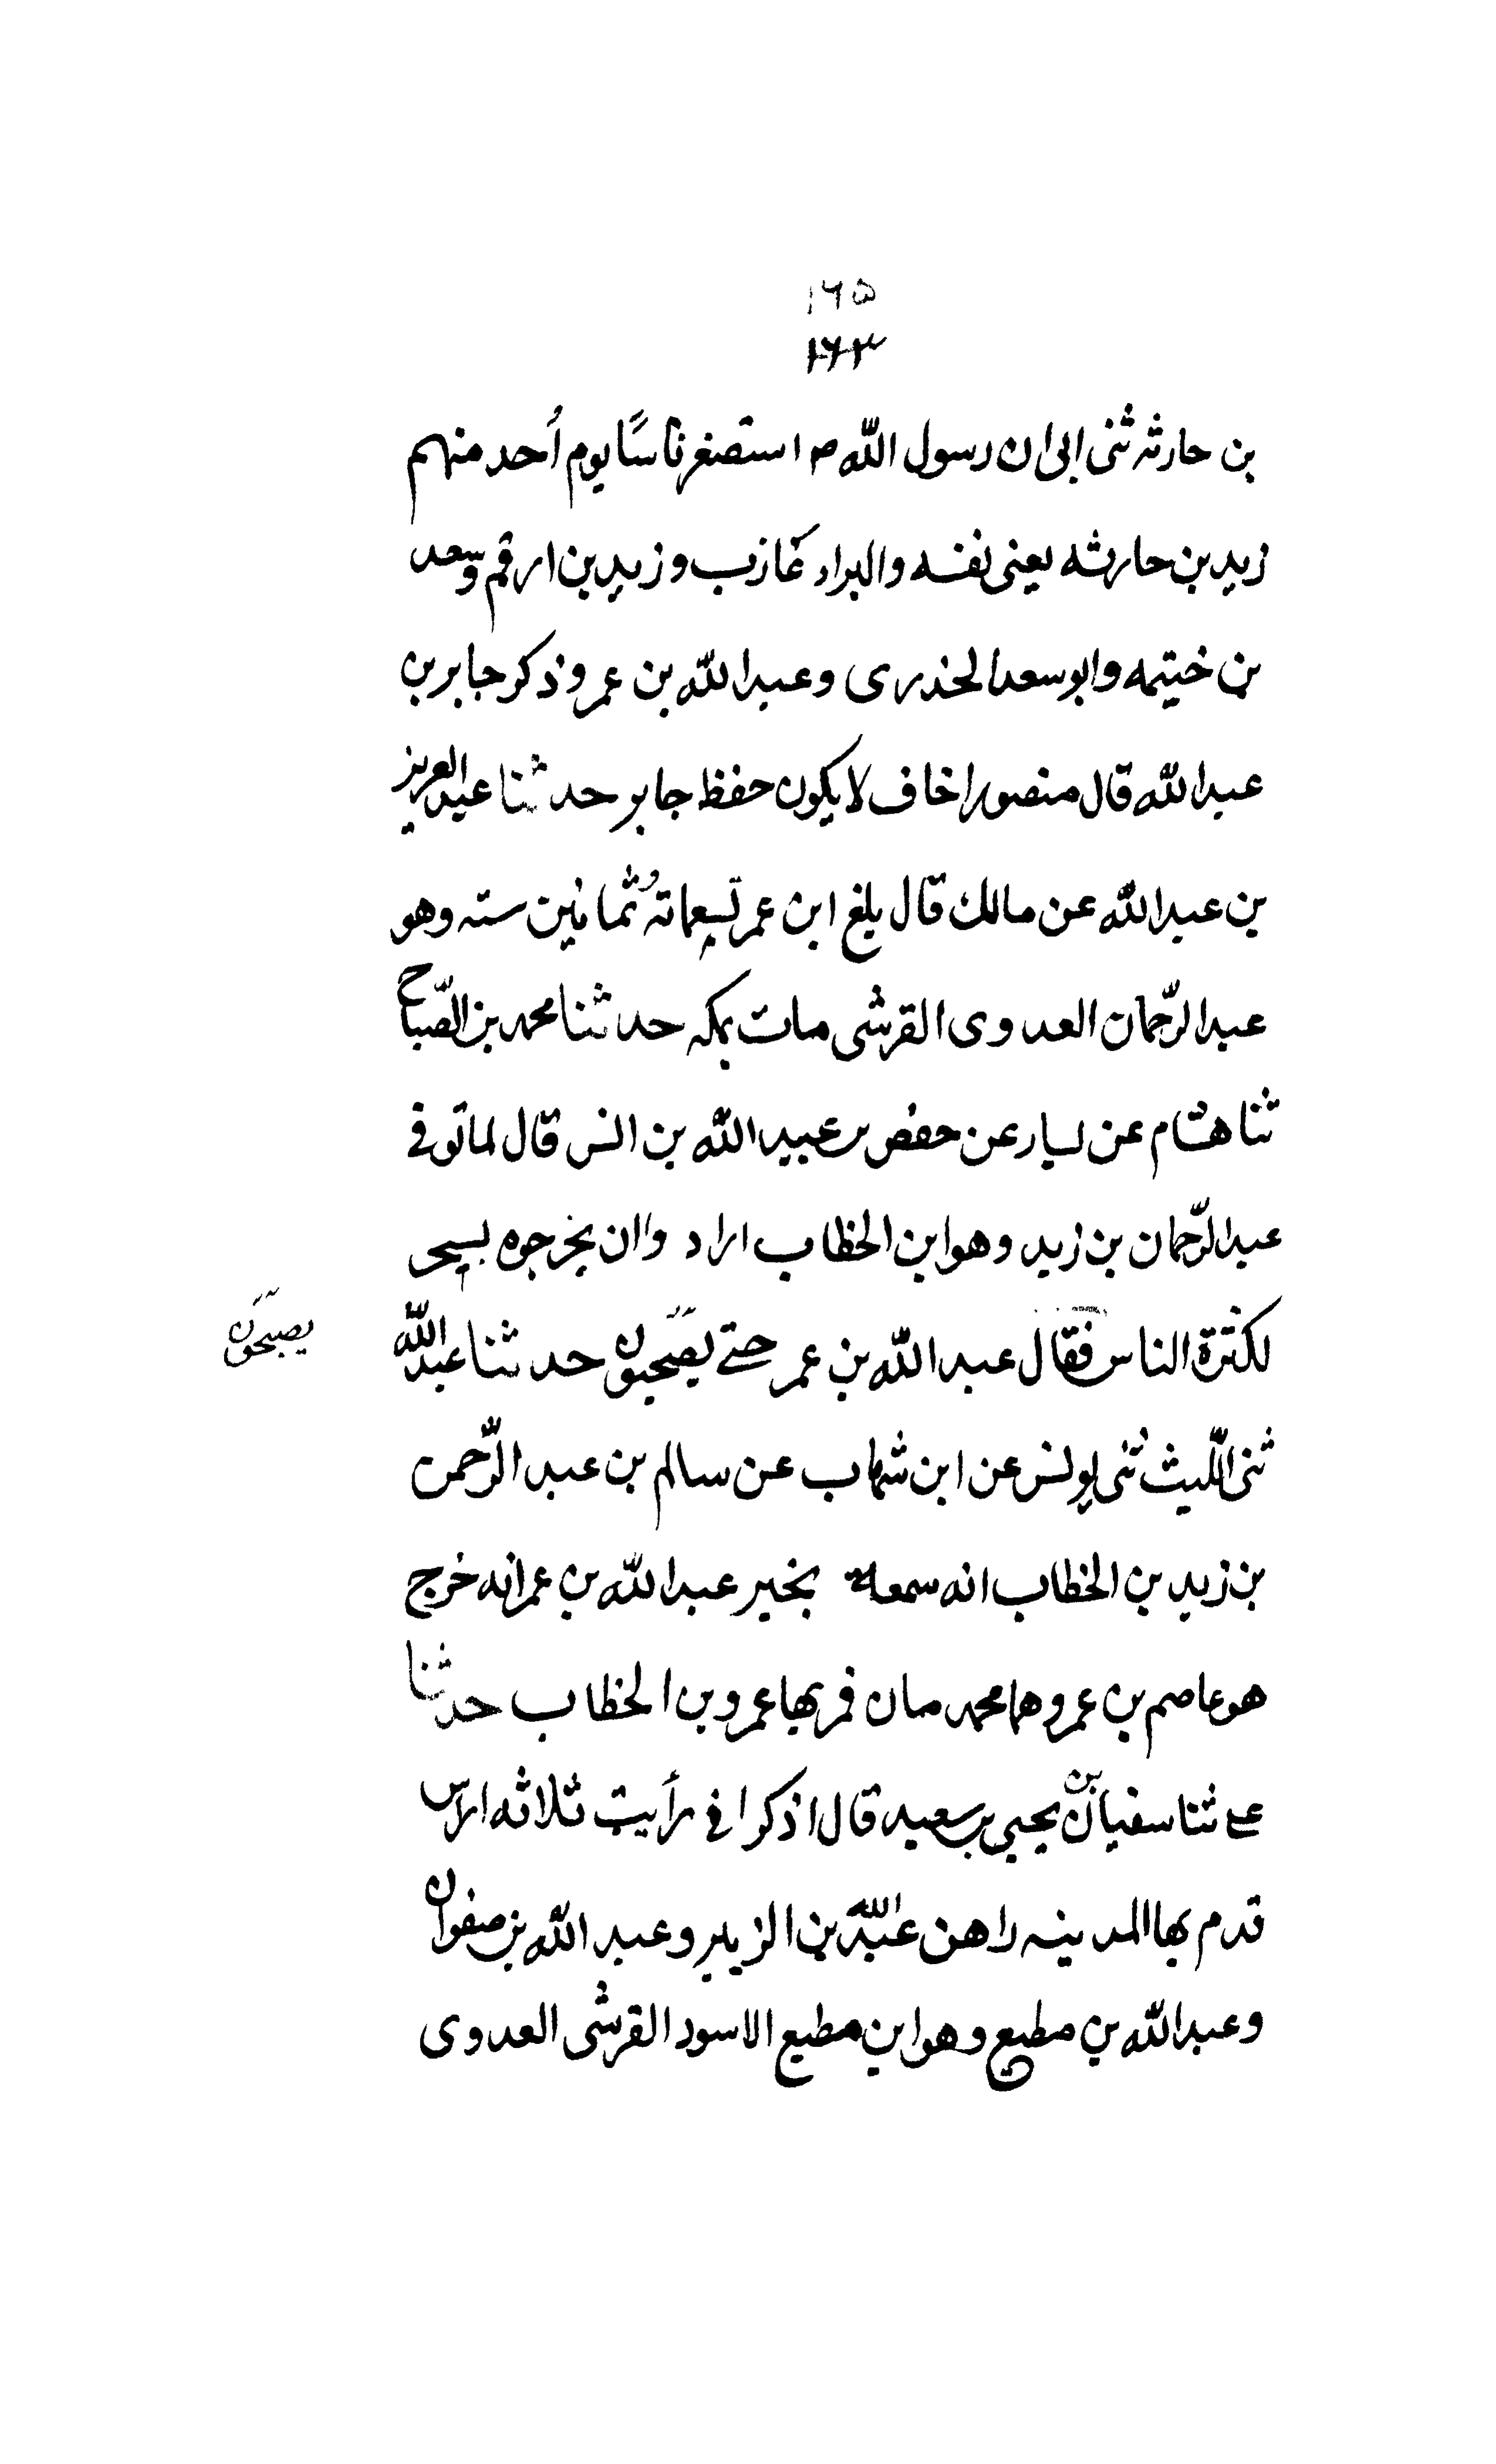 ١٦٥
١٦٣
بن حارثه ثنى ابى ان رسول الله ص استصغر ناسًا يوم أحد منهم
زيد بن حارثه يعنى نفسه والبراء عازب وزيد بن ارقم وسعد
بن خيتمه وابو سعد الخذرى وعبد الله بن عمر وذكر جابر بن
عبد الله قال منصور اخاف لا يكون حفظ جابر حدثنا عبد العزيز
بن عبد الله عن مالك قال بلغ ابن عمر ثمانين سته وهو
عبد الرّحمان العدوى القرشى مات بمكه حدثنا محمد بن الصّباح
ثنا هشام عن سيار عن حفص بن عبيد الله بن انس قال لما توفى
عبد الرّحمان بن زيد وهو ابن الخطاب اراد وا ان يخرجوه بسحر
لكثرة الناس فقال عبد الله بن عمر حتے يصّحبون حدثنا عبد الله
يصبّحون
ثنى اللّيث ثنى يونس عن ابن شهاب عن سالم بن عبد الرّحمن
بن زيد بن الخطاب انه سمعه بخير عبد الله بن عمر انه خرج
هو عاصم بن عمر وهما محمد مان فمر بها عمر وبن الخطاب حدثنا
على ثنا سفيان بن يحيى بن سعيد قال اذكر انى رأيت ثلاثه اراس
قدم بها المدينه راهن عبد الله بن الزبير وعبد الله بن صفوان
وعبد الله بن مطيع وهو ابن مطيع الاسود القرشى العدوى